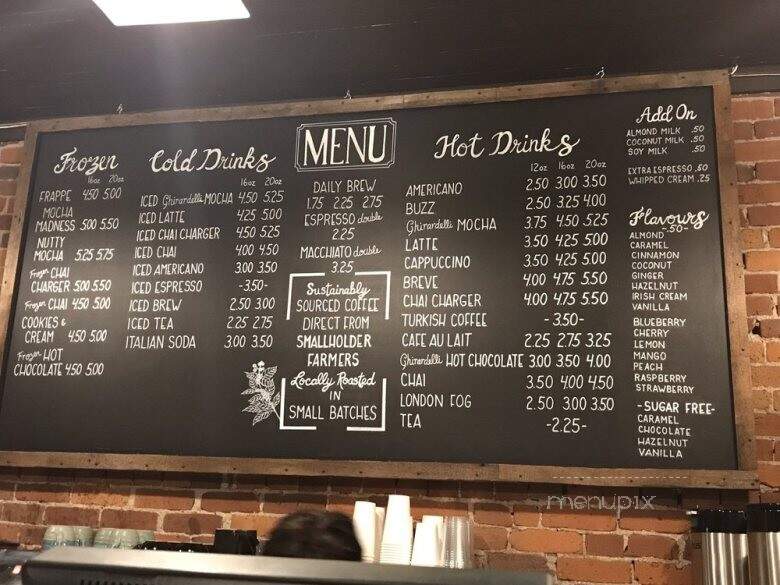 Frozen
16oz 20oz
FRAPPE 4.50 5.00
MOCHA
MADNESS 5.00 5.50
NUTTY
MOCHA 5.25 5.75
Frozen CHAI
CHARGER 5.00 5.50
Frozen CHAI 4.50 5.00
COOKIES &
CREAM 4.50 5.00
Frozen HOT
CHOCOLATE 4.50 5.00
Cold Drinks
16oz 20oz
ICED Ghirardelli MOCHA 4.50 5.25
ICED LATTE 4.25 5.00
ICED CHAI CHARGER 4.50 5.25
ICED CHAI 4.00 4.50
ICED AMERICANO 3.00 3.50
ICED ESPRESSO -3.50-
ICED BREW 2.50 3.00
ICED TEA 2.25 2.75
ITALIAN SODA 3.00 3.50
MENU
DAILY BREW
1.75 2.25 2.75
ESPRESSO double
2.25
MACCHIATO double
3.25
Sustainably
SOURCED COFFEE
DIRECT FROM
SMALLHOLDER
FARMERS
Locally Roasted
IN
SMALL BATCHES
Hot Drinks
12oz 16oz 20oz
AMERICANO 2.50 3.00 3.50
BUZZ 2.50 3.25 4.00
Ghirardelli MOCHA 3.75 4.50 5.25
LATTE 3.50 4.25 5.00
CAPPUCCINO 3.50 4.25 5.00
BREVE 4.00 4.75 5.50
CHAI CHARGER 4.00 4.75 5.50
TURKISH COFFEE -3.50-
CAFE AU LAIT 2.25 2.75 3.25
Ghirardelli HOT CHOCOLATE 3.00 3.50 4.00
CHAI 3.50 4.00 4.50
LONDON FOG 2.50 3.00 3.50
TEA -2.25-
Add On
ALMOND MILK .50
COCONUT MILK .50
SOY MILK .50
EXTRA ESPRESSO .60
WHIPPED CREAM .25
Flavours
-.50-
ALMOND
CARAMEL
CINNAMON
COCONUT
GINGER
HAZELNUT
IRISH CREAM
VANILLA
BLUEBERRY
CHERRY
LEMON
MANGO
PEACH
RASPBERRY
STRAWBERRY
-SUGAR FREE-
CARAMEL
CHOCOLATE
HAZELNUT
VANILLA
menupix